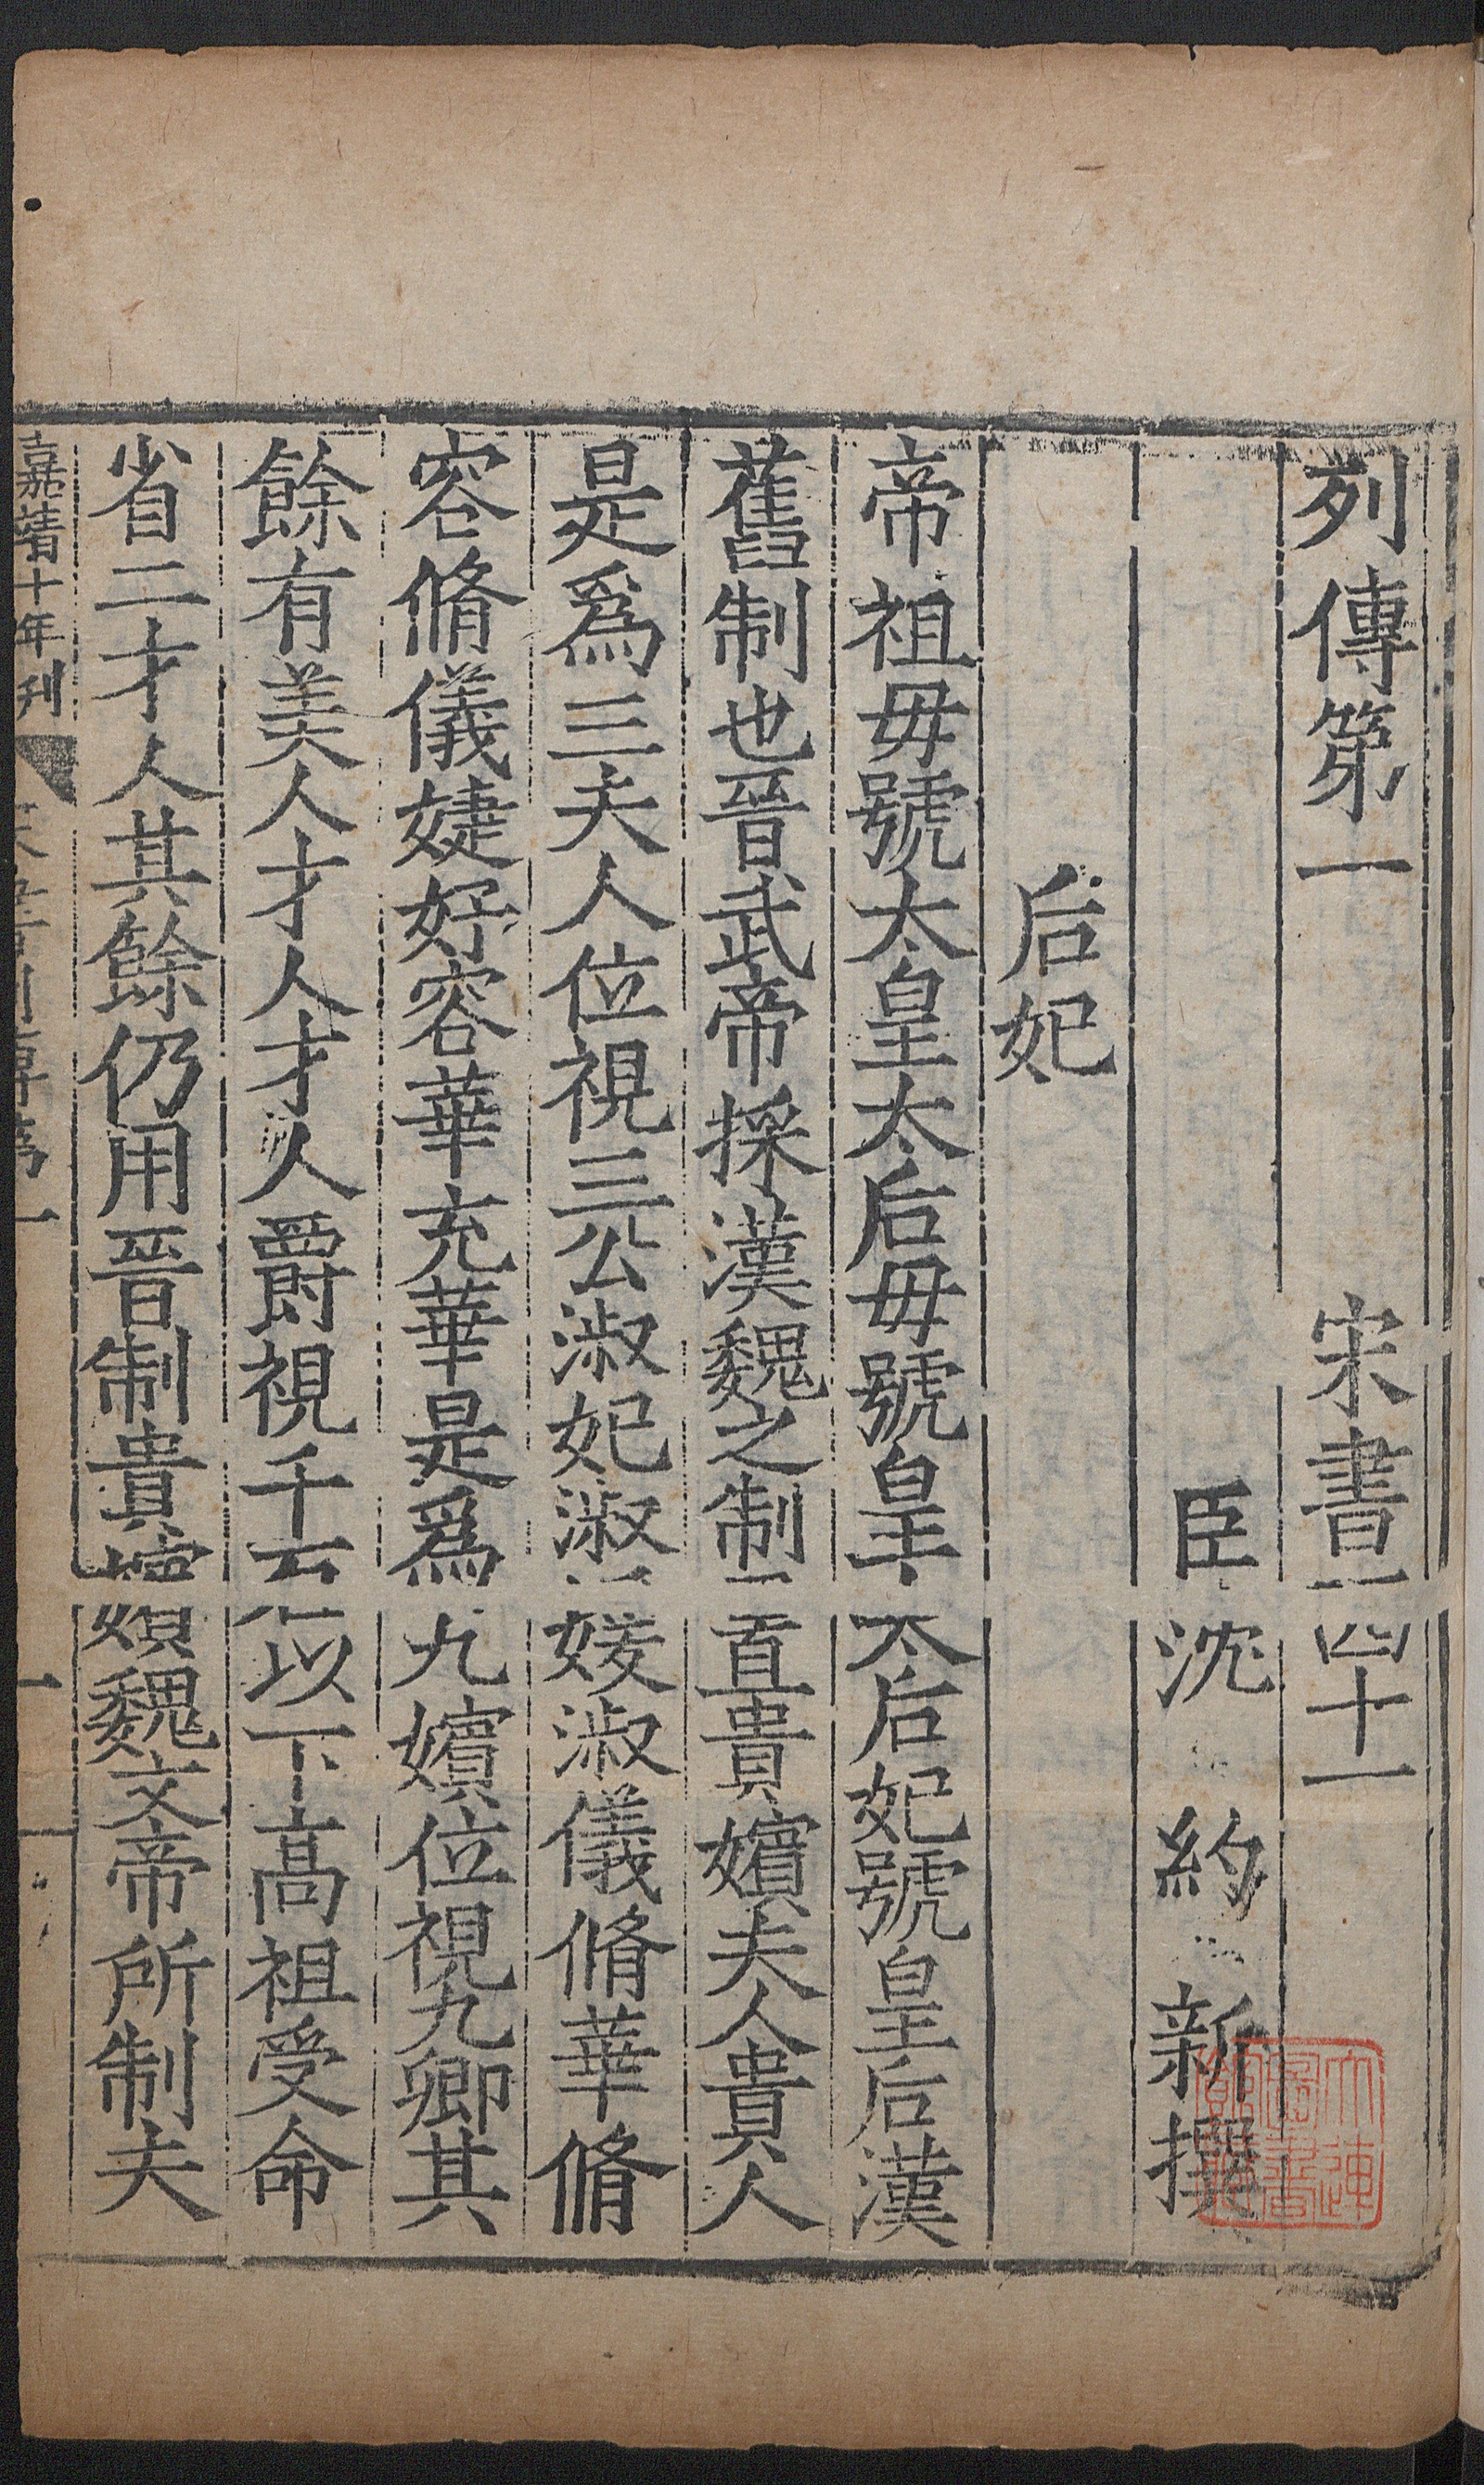 列傳第一 宋書四十一
臣沈約新撰
后妃
帝祖母號太皇太后母號皇太后妃號皇后漢
舊制也晉武帝採漢魏之制置貴嬪夫人貴人
是爲三夫人位視三公淑妃淑媛淑儀脩華脩
容脩儀婕妤容華充華是爲九嬪位視九卿其
餘有美人才人才人爵視千石以下高祖受命
省二才人其餘仍用晉制貴嬪魏文帝所制夫
嘉靖十年刊 列傳第一 一